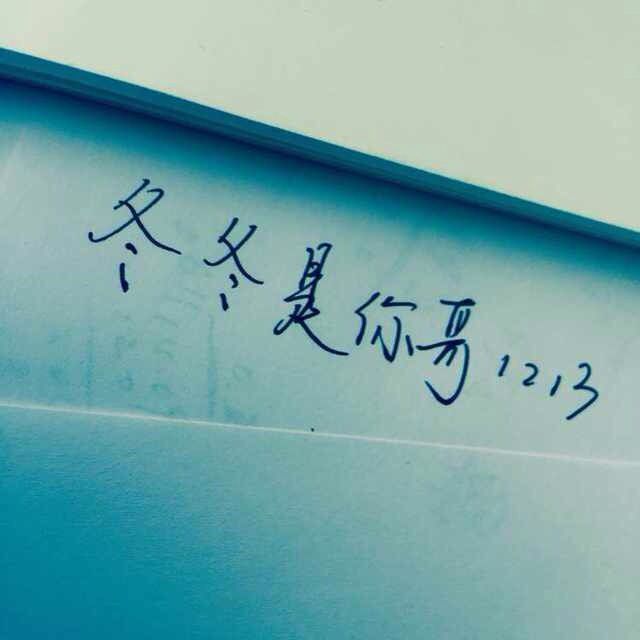 冬冬是你哥1213